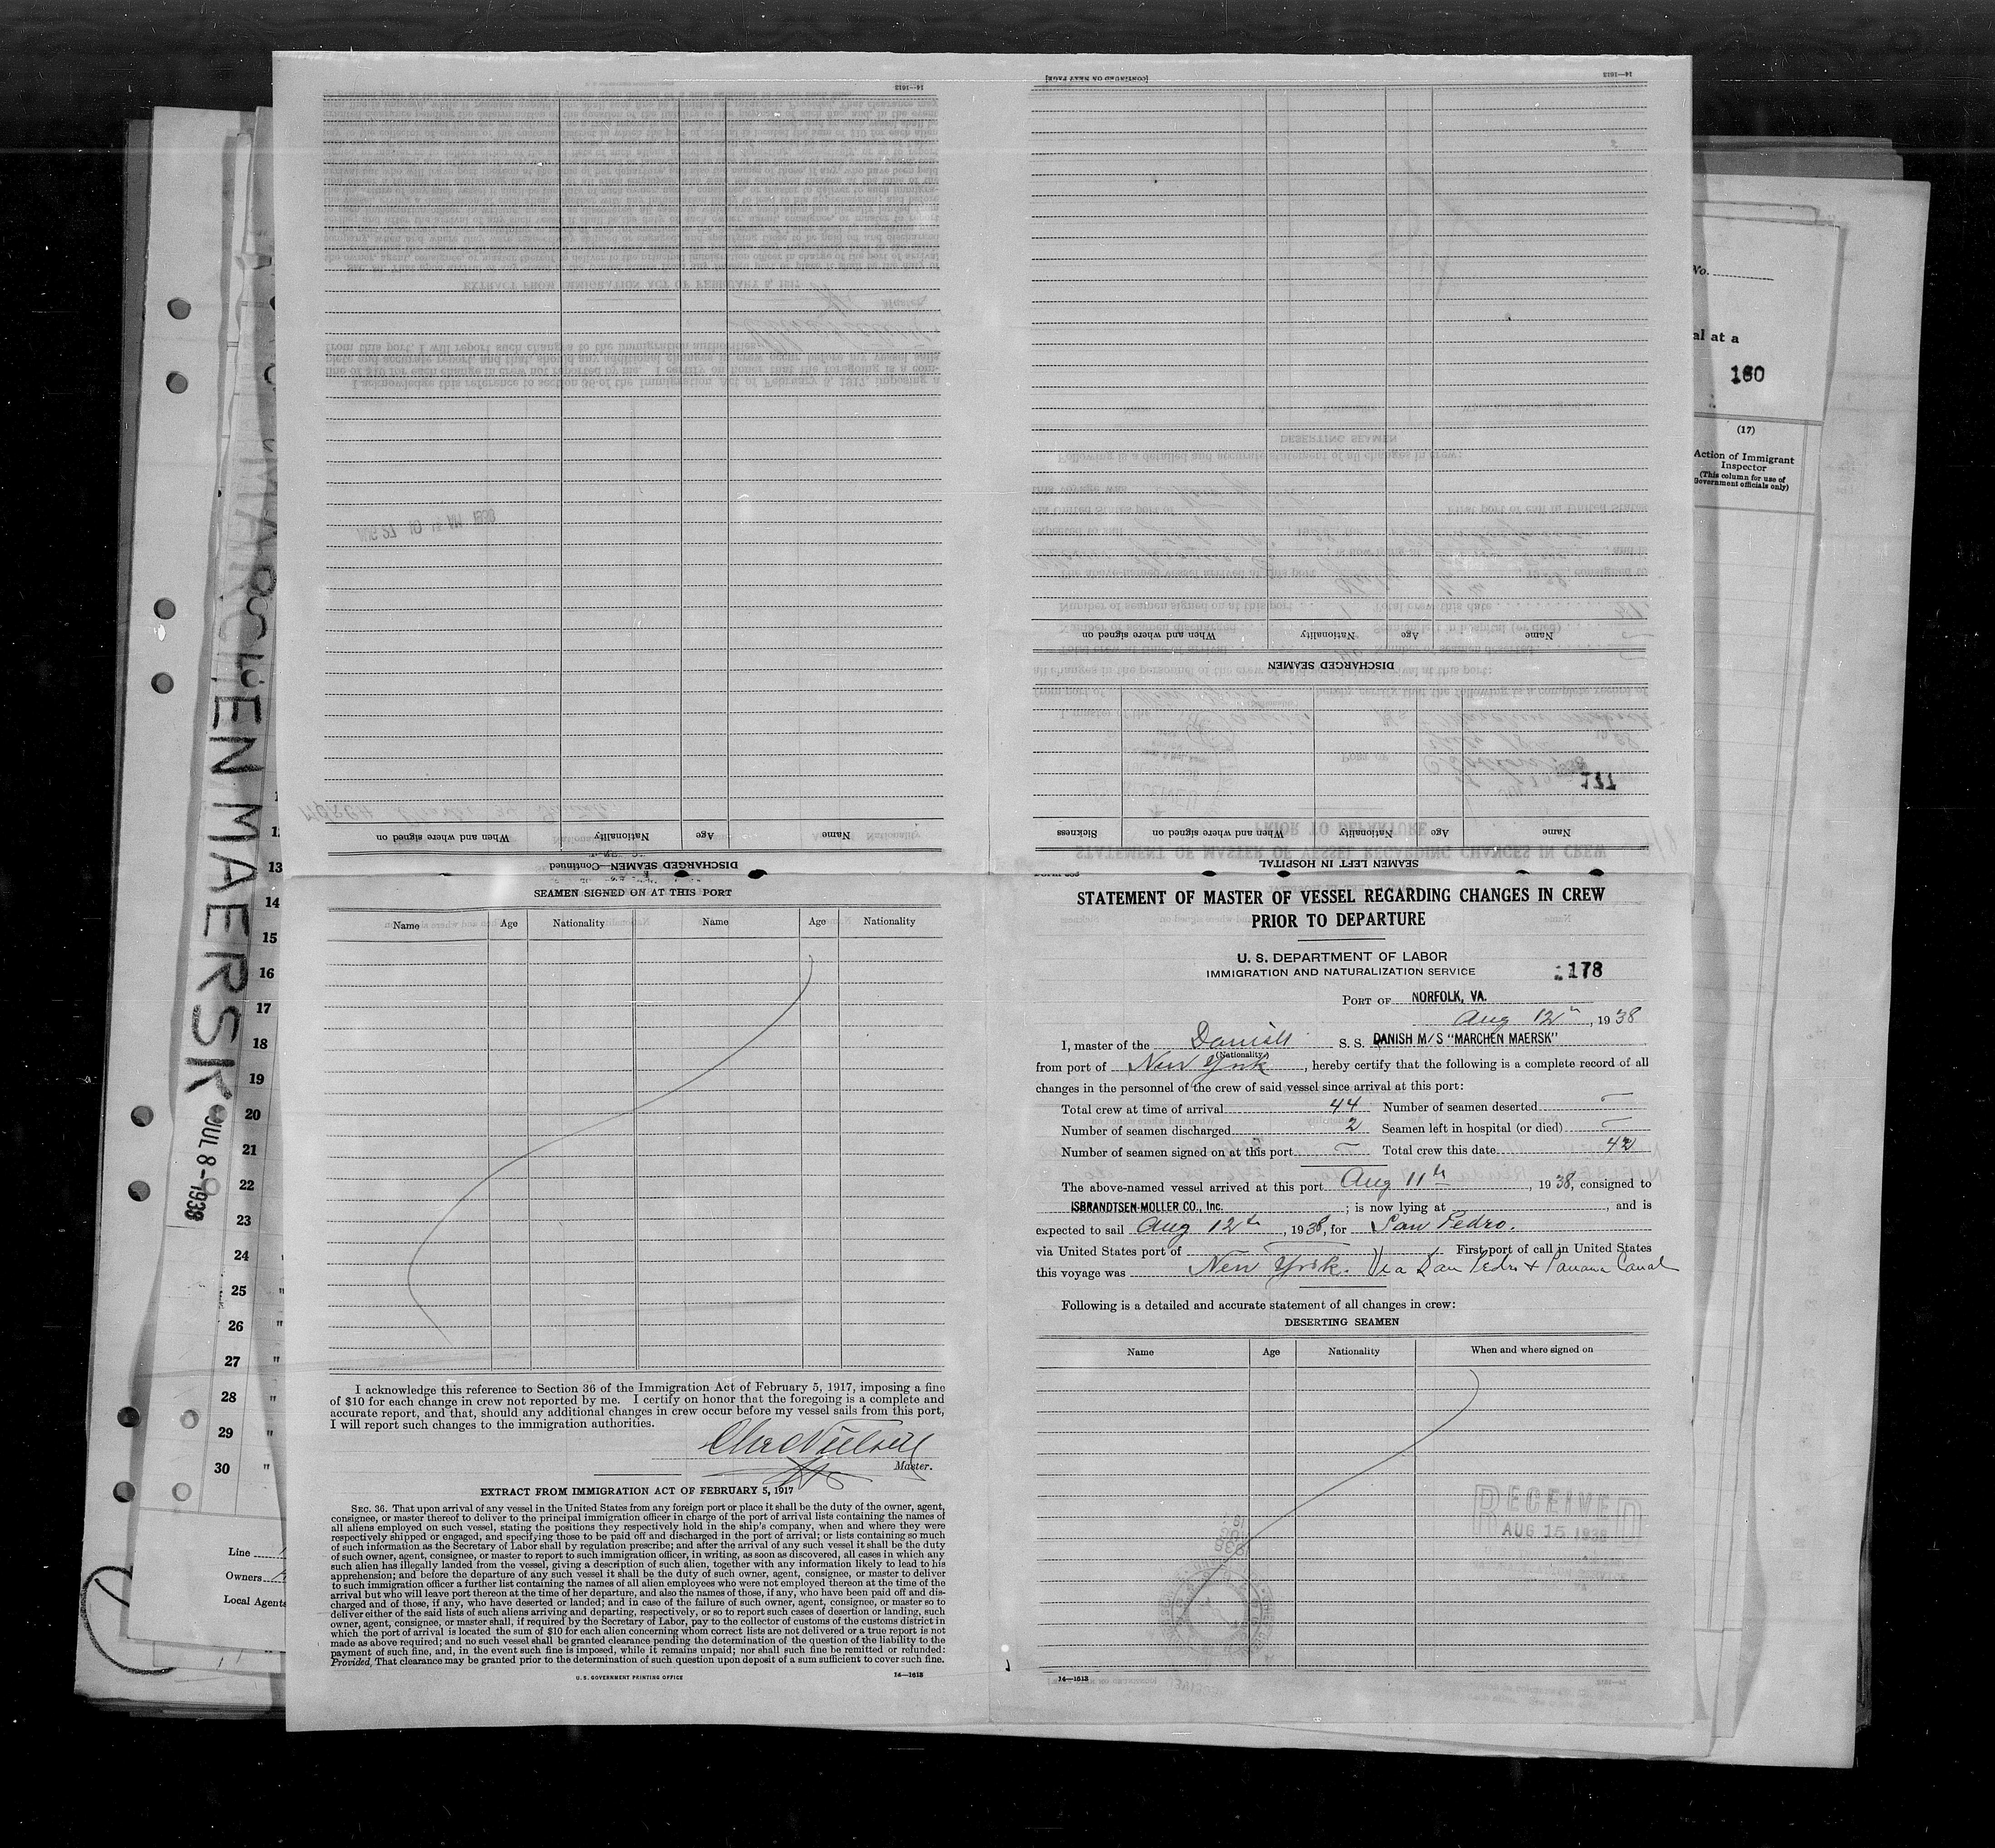 [CONTINUED ON NEXT PAGE]
14—1613
14—1613
DISCHARGED SEAMEN
Name
Age
Nationality
When and where signed on
SEAMEN LEFT IN HOSPITAL
Name
Age
Nationality
When and where signed on
Sickness
177
DISCHARGED SEAMEN—Continued
Name
Age
Nationality
When and where signed on
SEAMEN SIGNED ON AT THIS PORT
Name Age Nationality Name Age Nationality
I acknowledge this reference to Section 36 of the Immigration Act of February 5, 1917, imposing a fine
of $10 for each change in crew not reported by me. I certify on honor that the foregoing is a complete and
accurate report, and that, should any additional changes in crew occur before my vessel sails from this port,
I will report such changes to the immigration authorities.
Chr Nielsen
Master.
EXTRACT FROM IMMIGRATION ACT OF FEBRUARY 5, 1917
SEC. 36. That upon arrival of any vessel in the United States from any foreign port or place it shall be the duty of the owner, agent,
consignee, or master thereof to deliver to the principal immigration officer in charge of the port of arrival lists containing the names of
all aliens employed on such vessel, stating the positions they respectively hold in the ship's company, when and where they were
respectively shipped or engaged, and specifying those to be paid off and discharged in the port of arrival; or lists containing so much
of such information as the Secretary of Labor shall by regulation prescribe; and after the arrival of any such vessel it shall be the duty
of such owner, agent, consignee, or master to report to such immigration officer, in writing, as soon as discovered, all cases in which any
such alien has illegally landed from the vessel, giving a description of such alien, together with any information likely to lead to his
apprehension; and before the departure of any such vessel it shall be the duty of such owner, agent, consignee, or master to deliver
to such immigration officer a further list containing the names of all alien employees who were not employed thereon at the time of the
arrival but who will leave port thereon at the time of her departure, and also the names of those, if any, who have been paid off and dis-
charged and of those, if any, who have deserted or landed; and in case of the failure of such owner, agent, consignee, or master so to
deliver either of the said lists of such aliens arriving and departing, respectively, or so to report such cases of desertion or landing, such
owner, agent, consignee, or master shall, if required by the Secretary of Labor, pay to the collector of customs of the customs district in
which the port of arrival is located the sum of $10 for each alien concerning whom correct lists are not delivered or a true report is not
made as above required; and no such vessel shall be granted clearance pending the determination of the question of the liability to the
payment of such fine, and, in the event such fine is imposed, while it remains unpaid; nor shall such fine be remitted or refunded:
Provided, That clearance may be granted prior to the determination of such question upon deposit of a sum sufficient to cover such fine.
U. S. GOVERNMENT PRINTING OFFICE 14—1613
STATEMENT OF MASTER OF VESSEL REGARDING CHANGES IN CREW
PRIOR TO DEPARTURE
U. S. DEPARTMENT OF LABOR
IMMIGRATION AND NATURALIZATION SERVICE
178
PORT OF NORFOLK, VA.
Aug 12th, 1938
I, master of the Danish S. S. DANISH M/S "MARCHEN MAERSK"
(Nationality)
from port of New York, hereby certify that the following is a complete record of all
changes in the personnel of the crew of said vessel since arrival at this port:
Total crew at time of arrival 44 Number of seamen deserted —
Number of seamen discharged 2 Seamen left in hospital (or died) —
Number of seamen signed on at this port — Total crew this date 42
The above-named vessel arrived at this port Aug 11th, 1938, consigned to
ISBRANDTSEN-MOLLER CO., Inc.; is now lying at , and is
expected to sail Aug 12th, 1938, for San Pedro.
via United States port of — First port of call in United States
this voyage was New York. Via San Pedro & Panama Canal
Following is a detailed and accurate statement of all changes in crew:
DESERTING SEAMEN
Name Age Nationality When and where signed on
RECEIVED
AUG 15 1938
14—1613
MARCHEN MAERSK
JUL 8-1938
13
14
15
16
17
18
19
20
21
22
23
24
25 "
26 "
27 "
28 "
29 "
30 "
Line
Owners
Local Agents
No.
al at a
160
(17)
Action of Immigrant
Inspector
(This column for use of
Government officials only)